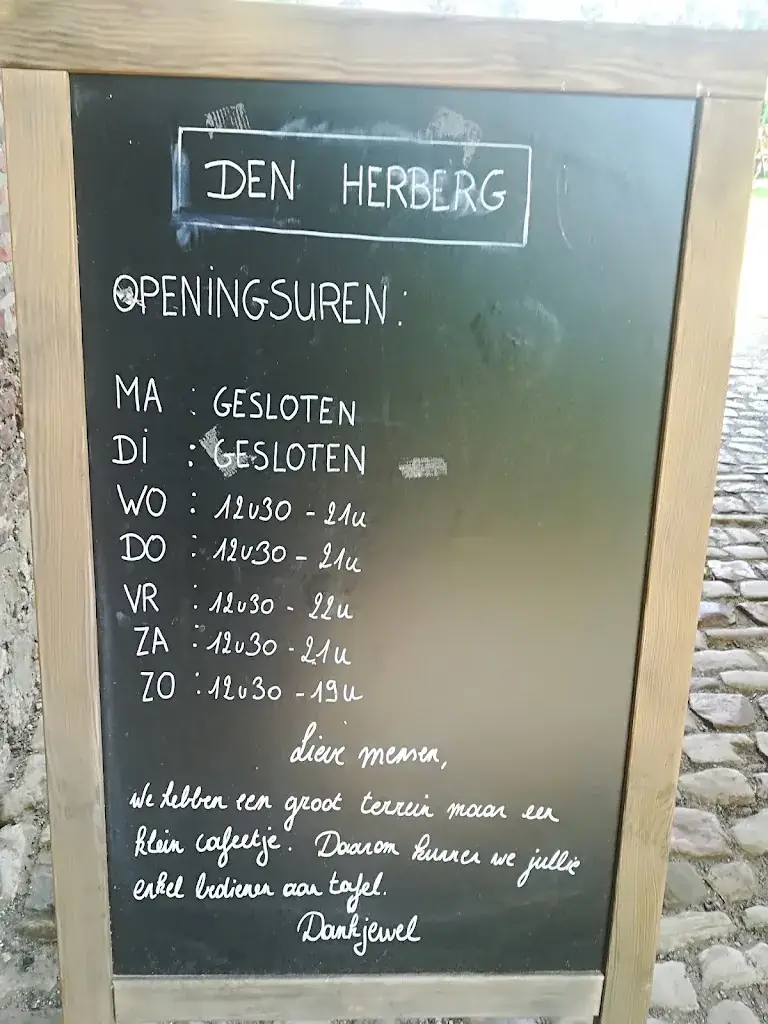 DEN HERBERG
OPENINGSUREN:
MA : GESLOTEN
DI : GESLOTEN
WO : 12u30 - 21u
DO : 12u30 - 21u
VR : 12u30 - 22u
ZA : 12u30 - 21u
ZO : 12u30 - 19u
Lieve mensen,
We hebben een groot terrein maar een
klein cafeetje. Daarom kunnen we jullie
enkel bedienen aan tafel.
Dankjewel